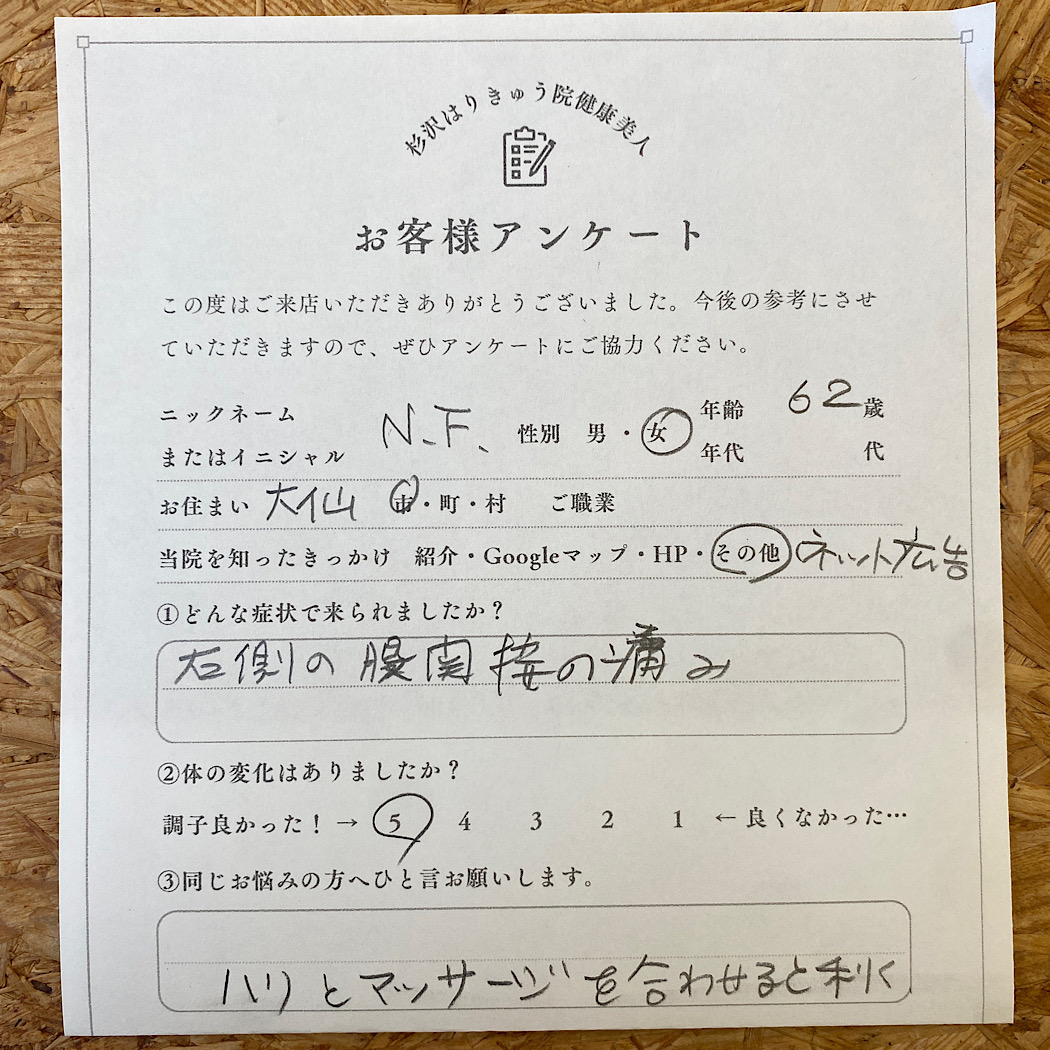 杉沢はりきゅう院健康美人
お客様アンケート
この度はご来店いただきありがとうございました。今後の参考にさせ
ていただきますので、ぜひアンケートにご協力ください。
ニックネーム
またはイニシャル N.F. 性別 男・女 年齢 62歳
年代 代
お住まい 大仙 市・町・村 ご職業
当院を知ったきっかけ 紹介・Googleマップ・HP・その他 ネット広告
①どんな症状で来られましたか？
右側の股関接の痛み
②体の変化はありましたか？
調子良かった！→ 5 4 3 2 1 ←良くなかった…
③同じお悩みの方へひと言お願いします。
ハリとマッサージを合わせると利く